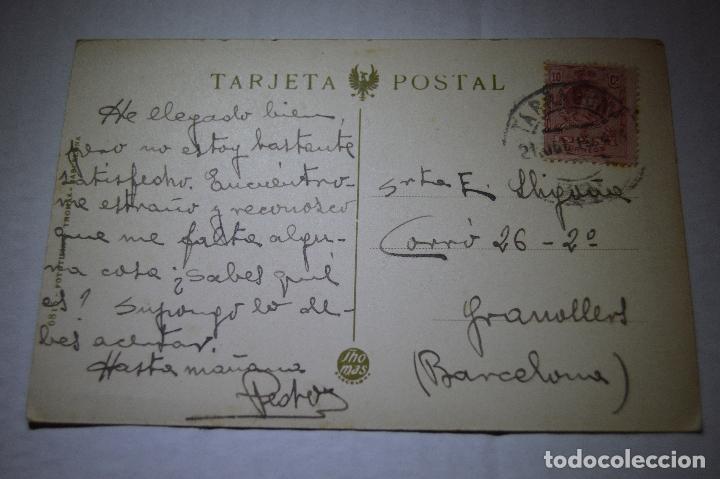 TARJETA POSTAL
He llegado bien,
pero no estoy bastante
satisfecho. Encuéntro-
me estraño y reconosco
que me falta algu-
na cosa ¿Sabes qué
es? Supongo lo de-
bes acertar.
Hasta mañana
Pedro
Thomas
10 Cs
TARRAGONA
21
Srta E.
Corró 26 - 2º
Granollers
(Barcelona)
BARCELONA
todocoleccion
todocoleccion.net